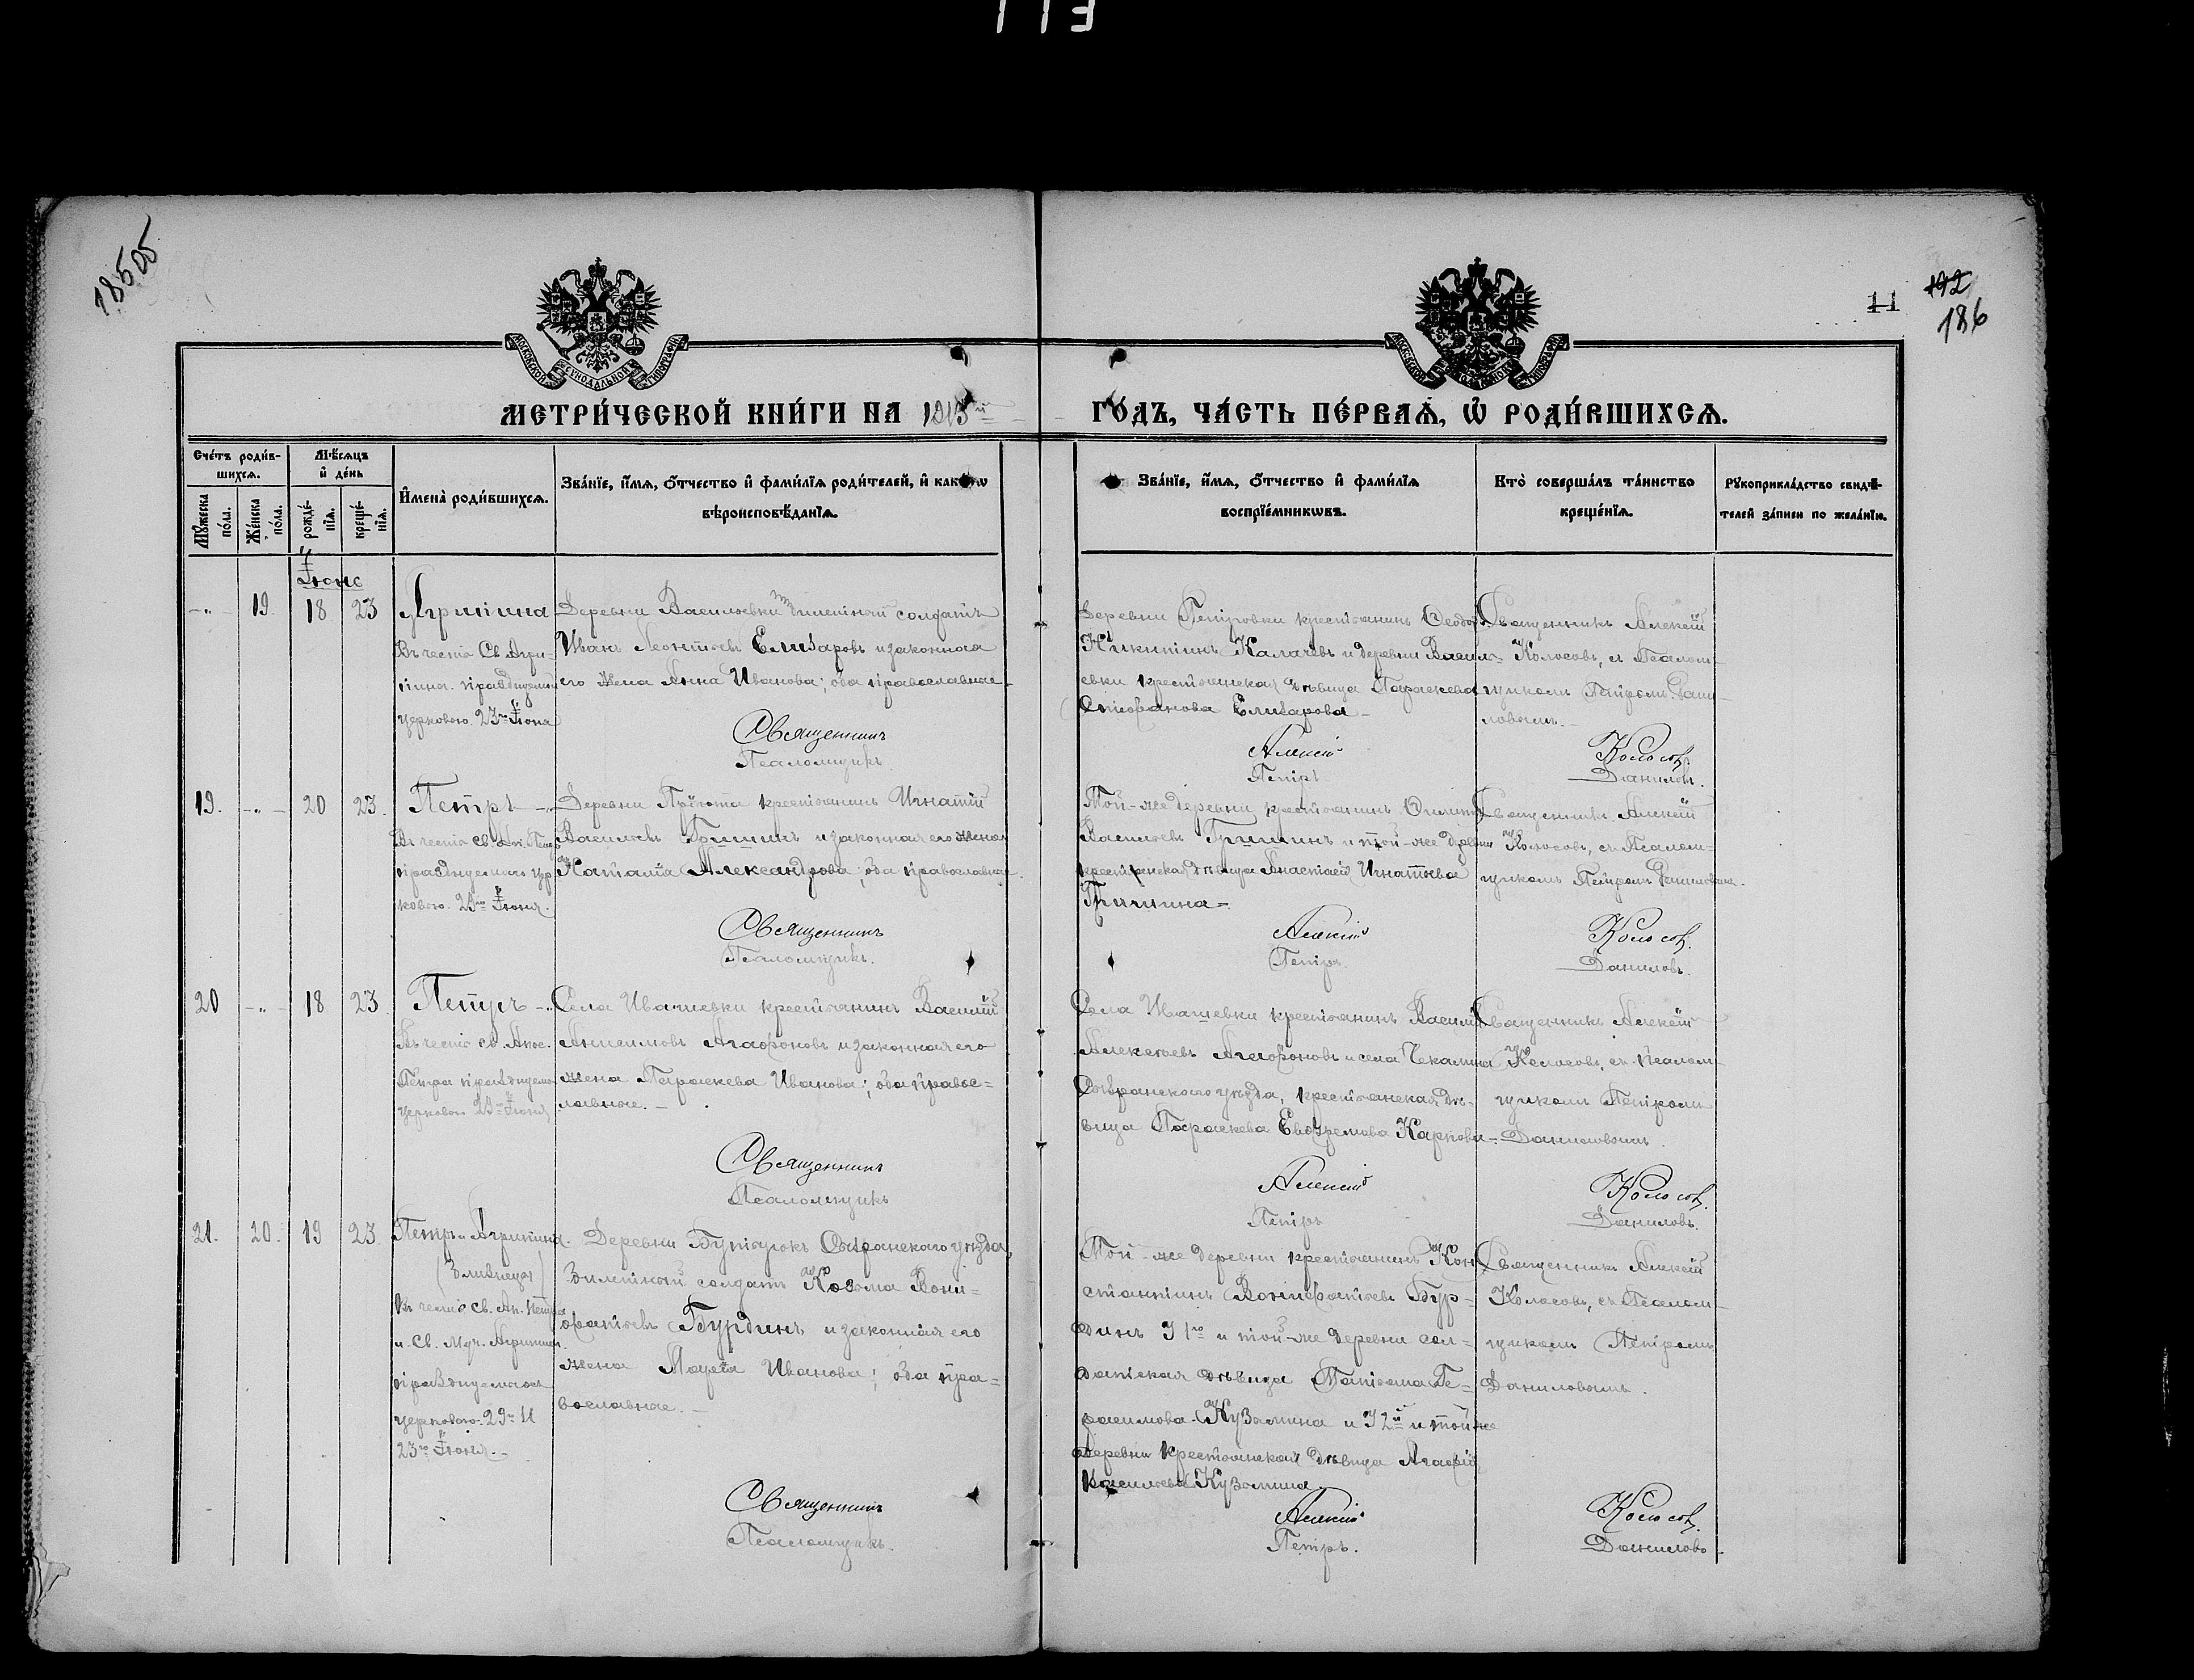 113
18505
11
192
186
МОСКОВСКОЙ СѴНОДАЛЬНОЙ ТИПОГРАФІИ
МЕТРИ́ЧЕСКОЙ КНИ́ГИ НА 1913й ГО́ДЪ, ЧА́СТЬ ПЕ́РВАѦ, Ѽ РОДИ́ВШИХСѦ.
Сче́тъ роди́в-
шихсѧ.
Мꙋ́жеска
по́ла.
Же́нска
по́ла.
Мѣ́сѧцъ
и҆ де́нь
рожде́-
нїѧ.
креще́-
нїѧ.
И҆мена̀ роди́вшихсѧ.
Зва́нїе, и҆́мѧ, ѻ҆́тчество и҆ фами́лїѧ роди́телей, и҆ какѡ́гѡ
вѣроисповѣ́данїѧ.
Зва́нїе, и҆́мѧ, ѻ҆́тчество и҆ фами́лїѧ
воспрїе́мникѡвъ.
Кто̀ соверша́лъ та́инство
креще́нїѧ.
Рꙋкоприкла́дство свидѣ́-
телей за́писи по жела́нїю.
Іюнь
-"- 19. 18 23
Агрипина
Въ честь Св. Агри-
пины. празднуемой
церковью. 23го Іюня
Деревни Васильевки солдатъ
Иванъ Леонтьевъ Елизаровъ и законная
его жена Анна Иванова; оба православные
Священникъ
Псаломщикъ
Деревни Петровки крестьянинъ Ѳеодоръ
Никитинъ Калачевъ и деревни Василь-
евки крестьянская дѣвица Параскева
Стефанова Елизарова
Алексій
Петръ
Священникъ Алексій
Колосовъ, съ Псалом-
щикомъ Петромъ Дани-
ловымъ.
Колосовъ.
Даниловъ.
19. -"- 20 23.
Петръ
Въ честь св. Ап. Петра
празднуемаго цер
ковью. 29го Іюня.
Деревни Пріюта крестьянинъ Игнатій
Васильевъ Гришинъ и законная его жена
Наталія Александрова; оба православные.
Священникъ
Псаломщикъ.
Той-же деревни крестьянинъ Филиппъ
Васильевъ Гришинъ и той-же деревни
крестьянская дѣвица Анастасія Игнатьева
Гришина
Алексій
Петръ.
Священникъ Алексій
Колосовъ, съ Псалом-
щикомъ Петромъ Даниловымъ.
Колосовъ.
Даниловъ.
20 -"- 18 23
Петръ
Въ честь св. Апос.
Петра празднуемаго
церковью 29го Іюня
Села Ивашевки крестьянинъ Василій
Анисимовъ Агафоновъ и законная его
жена Параскева Иванова; оба правос-
лавные.
Священникъ
Псаломщикъ
Села Ивашевки крестьянинъ Василій
Алексѣевъ Агафоновъ и села Чекалина
Сызранскаго уѣзда, крестьянская дѣ-
вица Параскева Евфремова Карпова
Алексій
Петръ
Священникъ Алексій
Колосовъ, съ Псалом-
щикомъ Петромъ
Даниловымъ.
Колосовъ.
Даниловъ.
21. 20. 19 23.
Петръ и Агрипина
(Близнецы)
Въ честь Св. Ап. Петра
и Св. Муч. Агрипины
празднуемыхъ
церковью. 29го и
23го Іюня.
Деревни Бутырокъ Сызранскаго уѣзда,
солдатъ Козьма Вони-
фатьевъ Бурдинъ и законная его
жена Марія Иванова; оба пра-
вославные.
Священникъ
Псаломщикъ.
Той-же деревни крестьянинъ Кон
стантинъ Вонифатьевъ Бур-
динъ У 1го и той-же деревни сол-
датская дѣвица Татьяна Ге-
расимова Кузьмина и У 2й и той же
деревни крестьянская дѣвица Агафія
Васильева Кузьмина.
Алексій
Петръ.
Священникъ Алексій
Колосовъ, съ Псалом-
щикомъ Петромъ
Даниловымъ.
Колосовъ.
Даниловъ